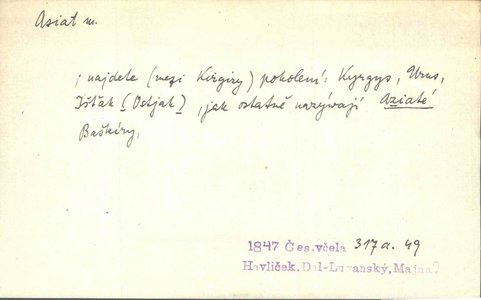 Asiat m.
; najdete (mezi Kirgizy) pokolení: Kyrgys, Urus,
Ištäk (Ostjak), jak ostatně nazývají Aziaté
Baškiry,
1847 Čes.včela 317a. 49
Havlíček, Dal-Luganský, Majna?